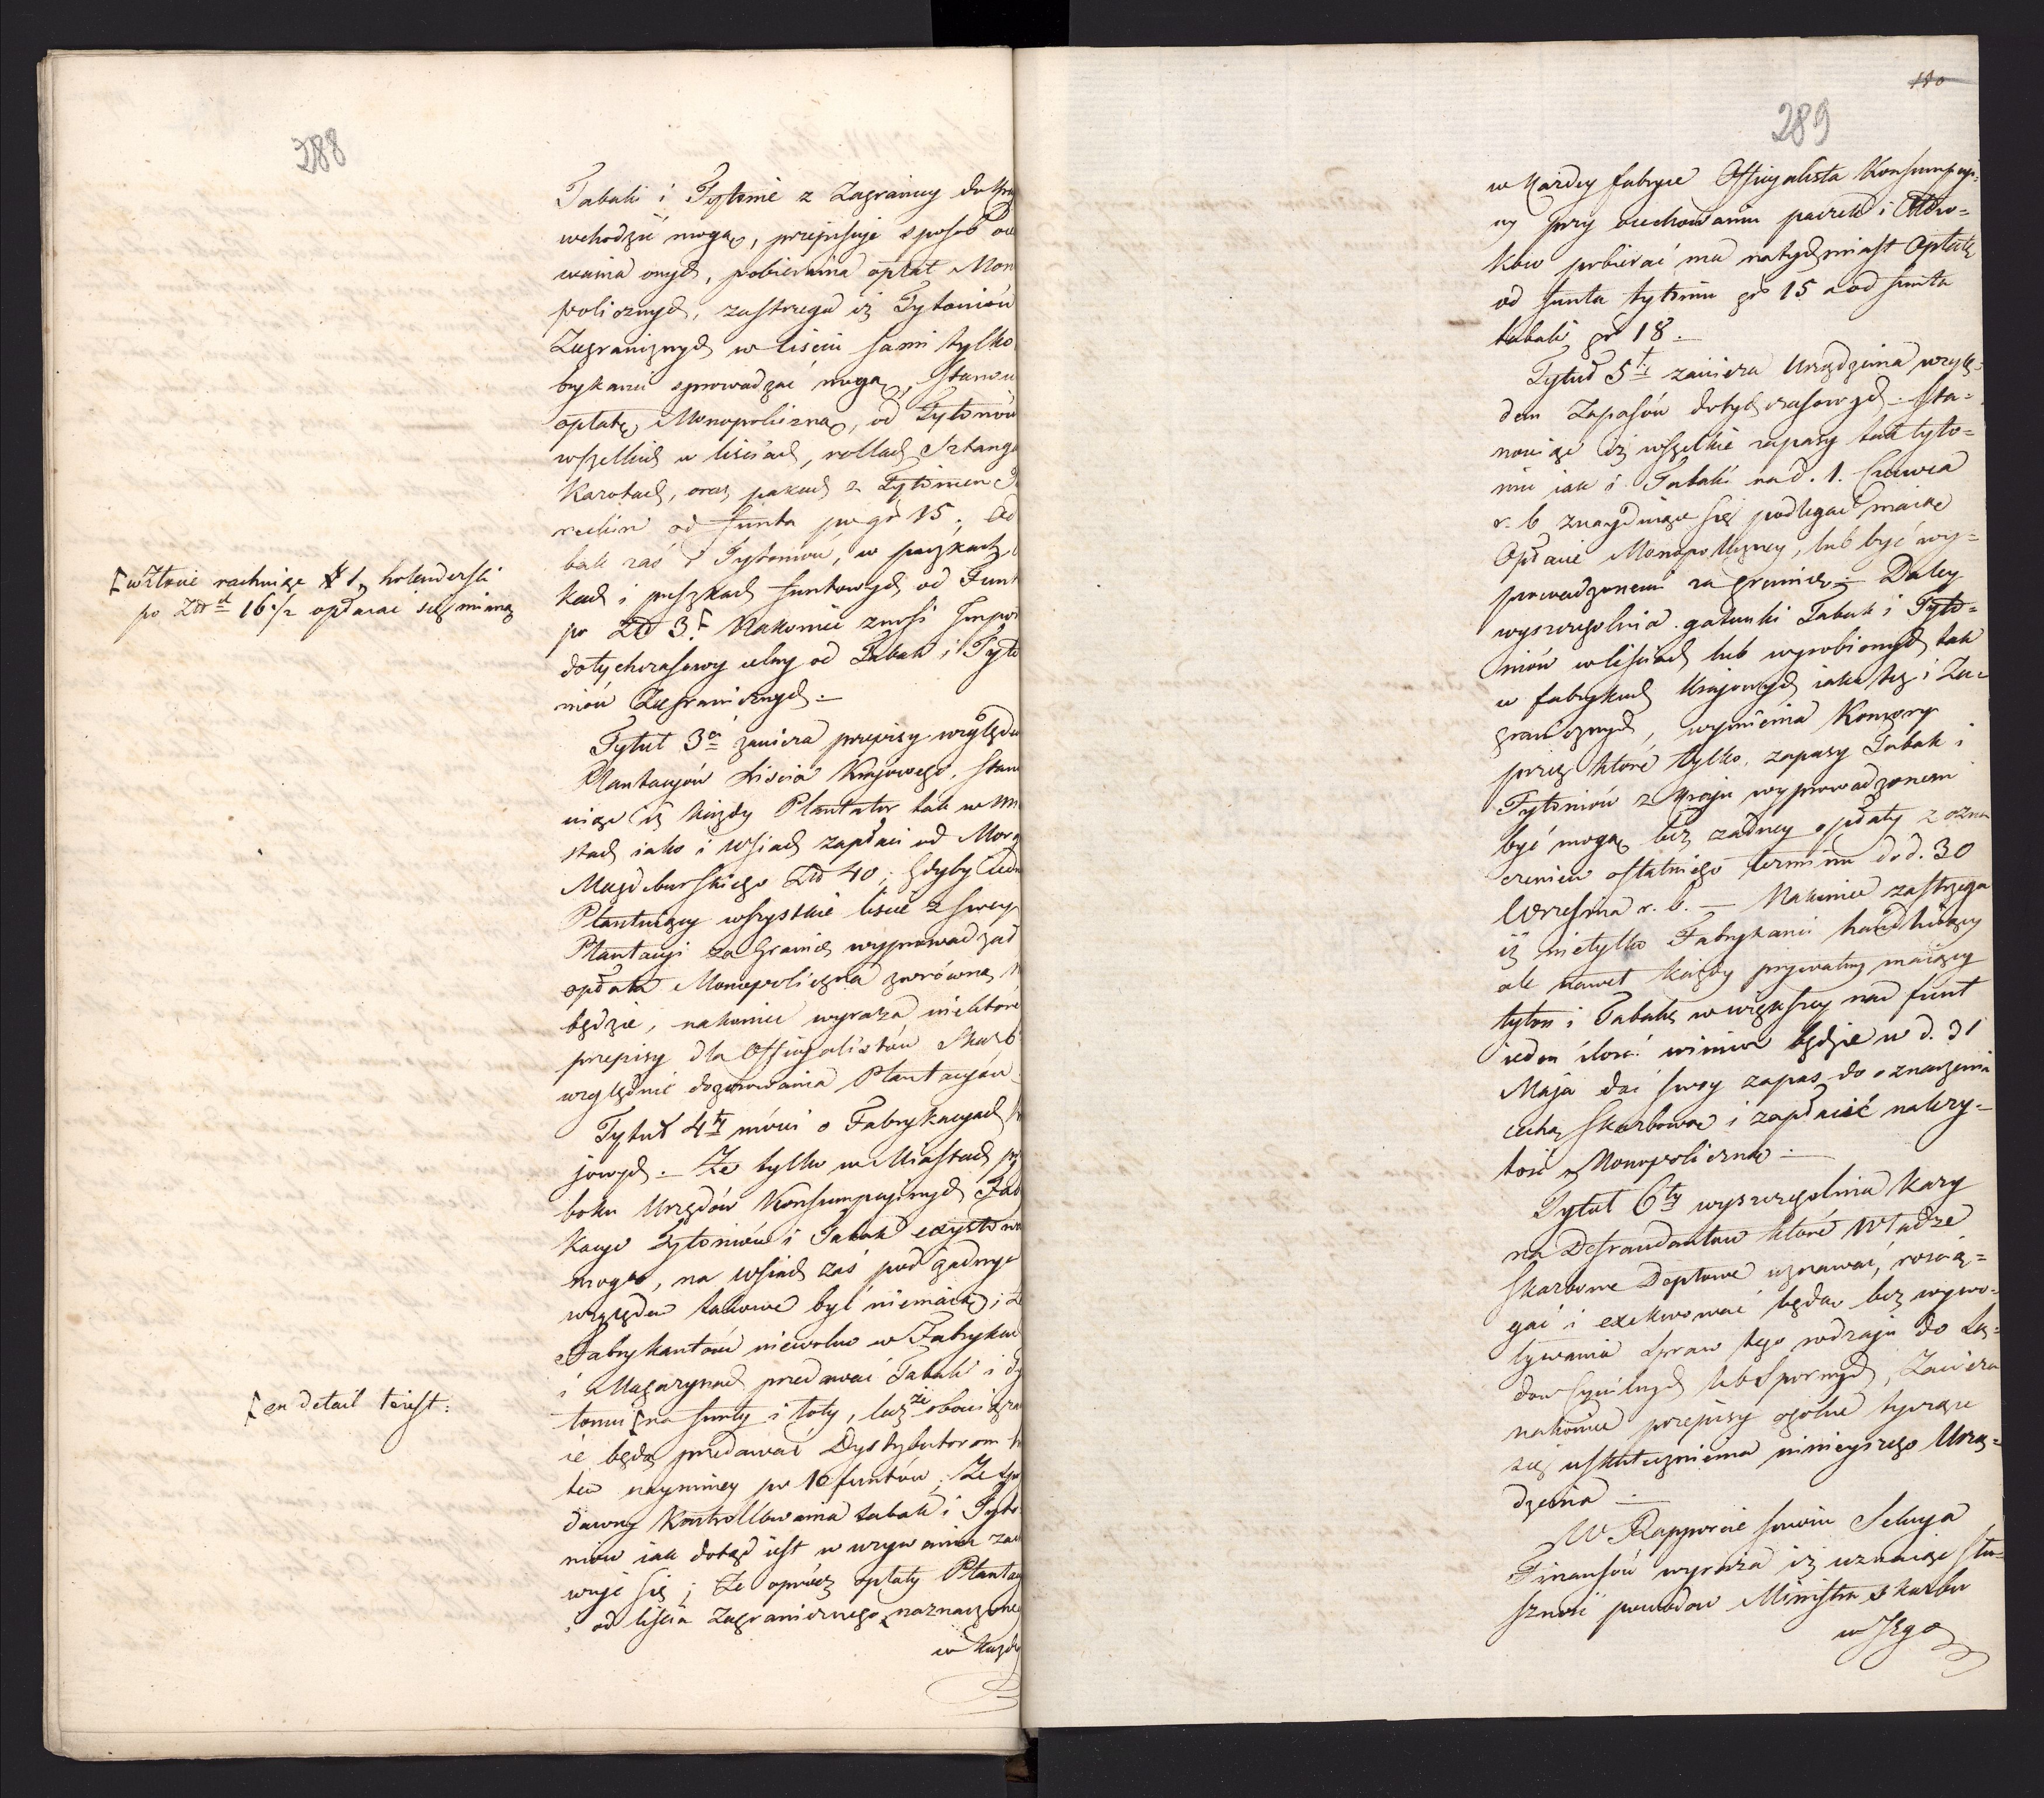 288
Tabaki i Tytonie z Zagranicy do Kraj
wchodzić mogą, przepisuje sposób
wania onych, pobierania opłat Mon
policznych, zastrzega iż Tytoniów
Zagranicznych w liściu sami tylko
brykanci sprowadzać mogą, Stanow
opłatę Monopoliczną, od Tytoniów
wszelkich w liściach, rollach, Sztanga
Karotach, oraz pakach z Tytoniem
od funta po gr 15. Od
bak zaś i Tytoniów, w paczkach,
kach i puszkach funtowych od Funt
po Złł 3.⌈ Nakoniec znosi Impos
dotychczasowy celny od Tabak i Tyto
niów Zagranicznych. —
⌈w Złocie rachuiąc # 1 holenderski
po Złł 16 1/2 opłacać się maią
Tytuł 3ci zawiera przepisy względu
Plantacyów Liścia Kraiowego, stano
wiąc iż każdy Plantator tak w Mia
stach iako i wsiach zapłaci od Morg
Magdeburskiego Złł 40; gdyby iedn
Plantuiący wszystkie liście z swey
Plantacyi za Granicę wyprowadzał
opłata Monopoliczna zwróconą
będzie, nakoniec wyraża niektóre
przepisy dla Officyalistów Skarb
względnie dozorowania Plantacyów
Tytuł 4ty mówi o Fabrykacyach
jowych. — Że tylko w Miastach przy
boku Urzędów Konsumpcyinych Fab
kacye Tytoniów i Tabak exystować
mogą, na wsiach zaś pod żadnym
względem takowe być niemaią; że
Fabrykantom niewolno w Fabrykach
i Magazynach przedawać Tabaki i Ty
toniu ⌈ na funty i łoty, lecz że obowiąza
ni będą przedawać Dystrybutorom
naymniey po 10 funtów; Że spo
dawny Kontrollowania tabak i Tyto
niów iak dotąd iest w używaniu zach
wuje się; Że oprócz opłaty Plantac
i od liścia Zagranicznego naznaczoney
w każdy
⌈en detail to iest:
180
289
w każdey fabryce Officyalista Konsumpcyi=
ny przy cechowaniu paczek i
ków pobierać ma natychmiast Opłatę
od funta tytoniu gr 15 a od funta
tabaki gr 18. —
Tytuł 5ty zawiera Urządzenia wzglę=
dem Zapasów dotychczasowych. Sta=
nowiąc iż wszelkie zapasy tak tyto=
niu iak i Tabaki na d. 1. Czerwca
r. b. znayduiące się podlegać maią
Opłacie Monopoliczney, lub być wy=
prowadzonemi za granicę. — Daley
wyszczególnia gatunki Tabak i Tyto=
niów w liściach lub wyrobionych tak
w fabrykach Krajowych iako też i Za=
granicznych, wymienia Komory
przez które tylko, zapasy Tabak i
Tytoniów z Kraju wyprowadzonemi
być mogą bez żadney opłaty z ozna
czeniem ostatniego terminu do d. 30
Września r. b. — Nakoniec zastrzega
iż nietylko Fabrykanci handluiący
ale nawet każdy prywatny maiący
tytoń i Tabakę w większey nad funt
ieden ilość winien będzie w d. 31
Maja dać swoy zapas do oznaczenia
cechą Skarbową i zapłacić należy=
tość Monopoliczną. —
Tytuł 6ty wyszczególnia Kary
na Defraudantów które Władze
Skarbowe Dochodowe uznawać, rozcią=
gać i exekwować będą bez wywo=
ływania Spraw tego rodzaju do Są=
dów Cywilnych lub Spornych, Zawiera
nakoniec przepisy ogólne tyczące
się uskutecznienia ninieyszego Urzą=
dzenia. —
W Rapporcie swoim Sekcya
Finansów wyraża iż uznaiąc słu=
szność powodów Ministra Skarbu